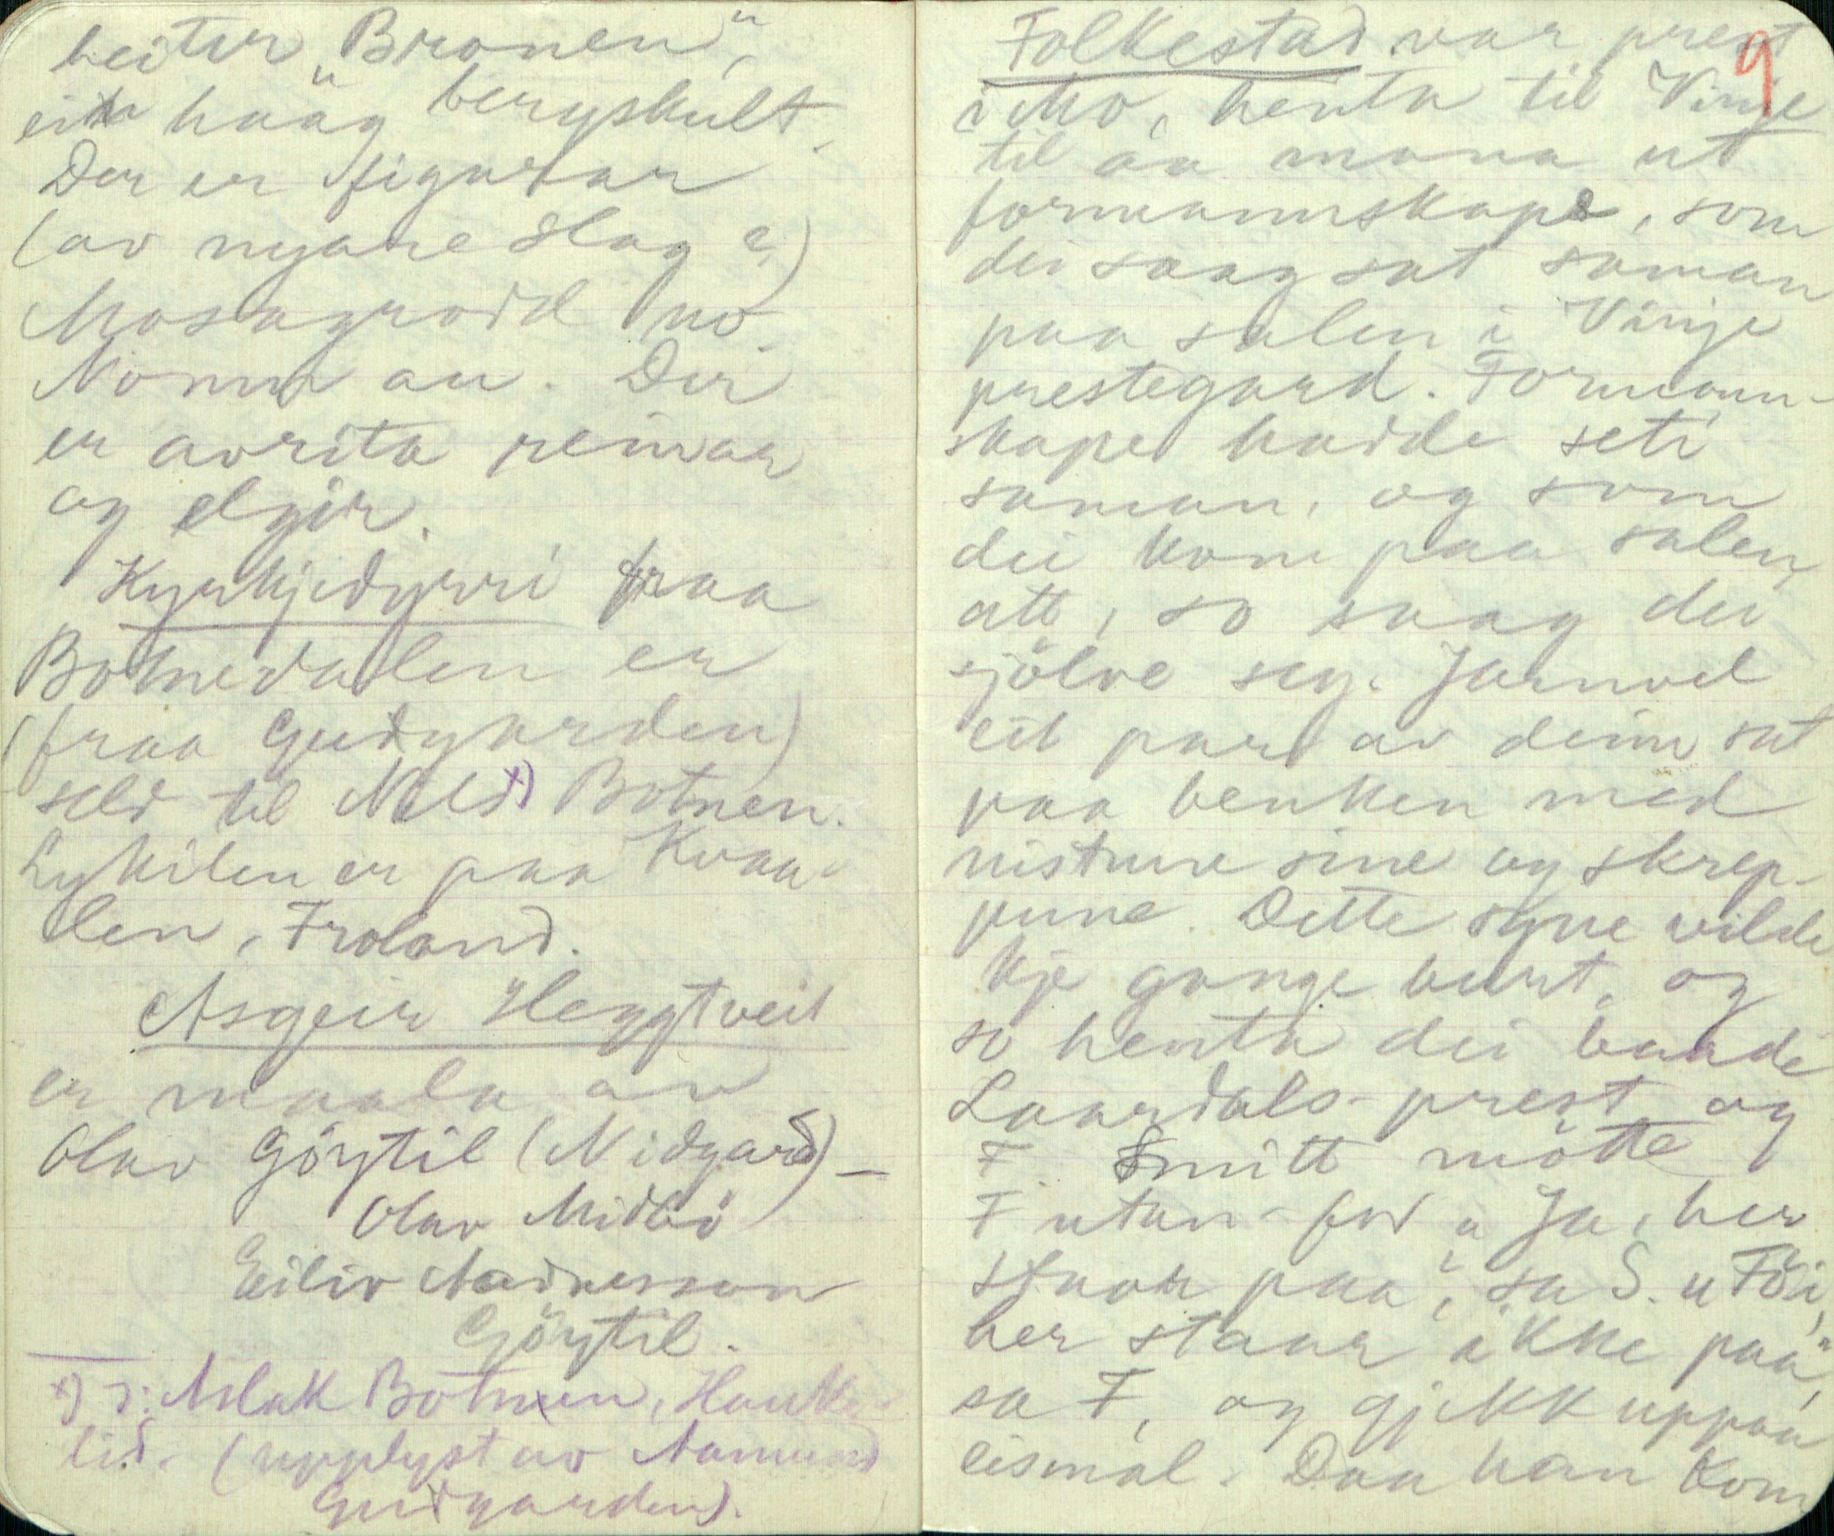 heiter "Bronen",
ein haag bergskult.
Der er figurar
(av nyare slag?)
Mosagrodd no.
Nomn au. Der
er avrita reinar
og elgir.
Kyrkjedyrri fraa
Botnedalen er
(fraa Gudgarden)
seld til Nils x) Botnen.
Lykilen er paa Kvaa-
len, Froland.
Asgeir Heggtveit
er maala av
Olav Göytil (Nidgard) -
Olav Midbö
Eiliv Aadnesson
Göytil.
x) ɔ: Aslak Botnen, Hauke-
lid. (upplyst av Aamund
Gudgarden).
9
Folkestad var prest
i Mo, henta til Vinje
til aa mana ut
formannskape, som
dei saag sat saman
paa salen i Vinje
prestegard. Formann-
skape hadde seti
saman, og som
dei kom paa salen
att, so saag dei
sjölve seg. Jamvel
eit par av deim sat
paa benken med
nisturne sine og skrep-
pune. Dette syne vilde
kje gange burt, og
so henta dei baade
Laardals-prest og
F. Smitt mötte
F utan-for "Ja, her
staar paa", sa S. "Föi,
her staar ikke paa",
sa F, og gjekk uppaa
eismal. Daa han kom